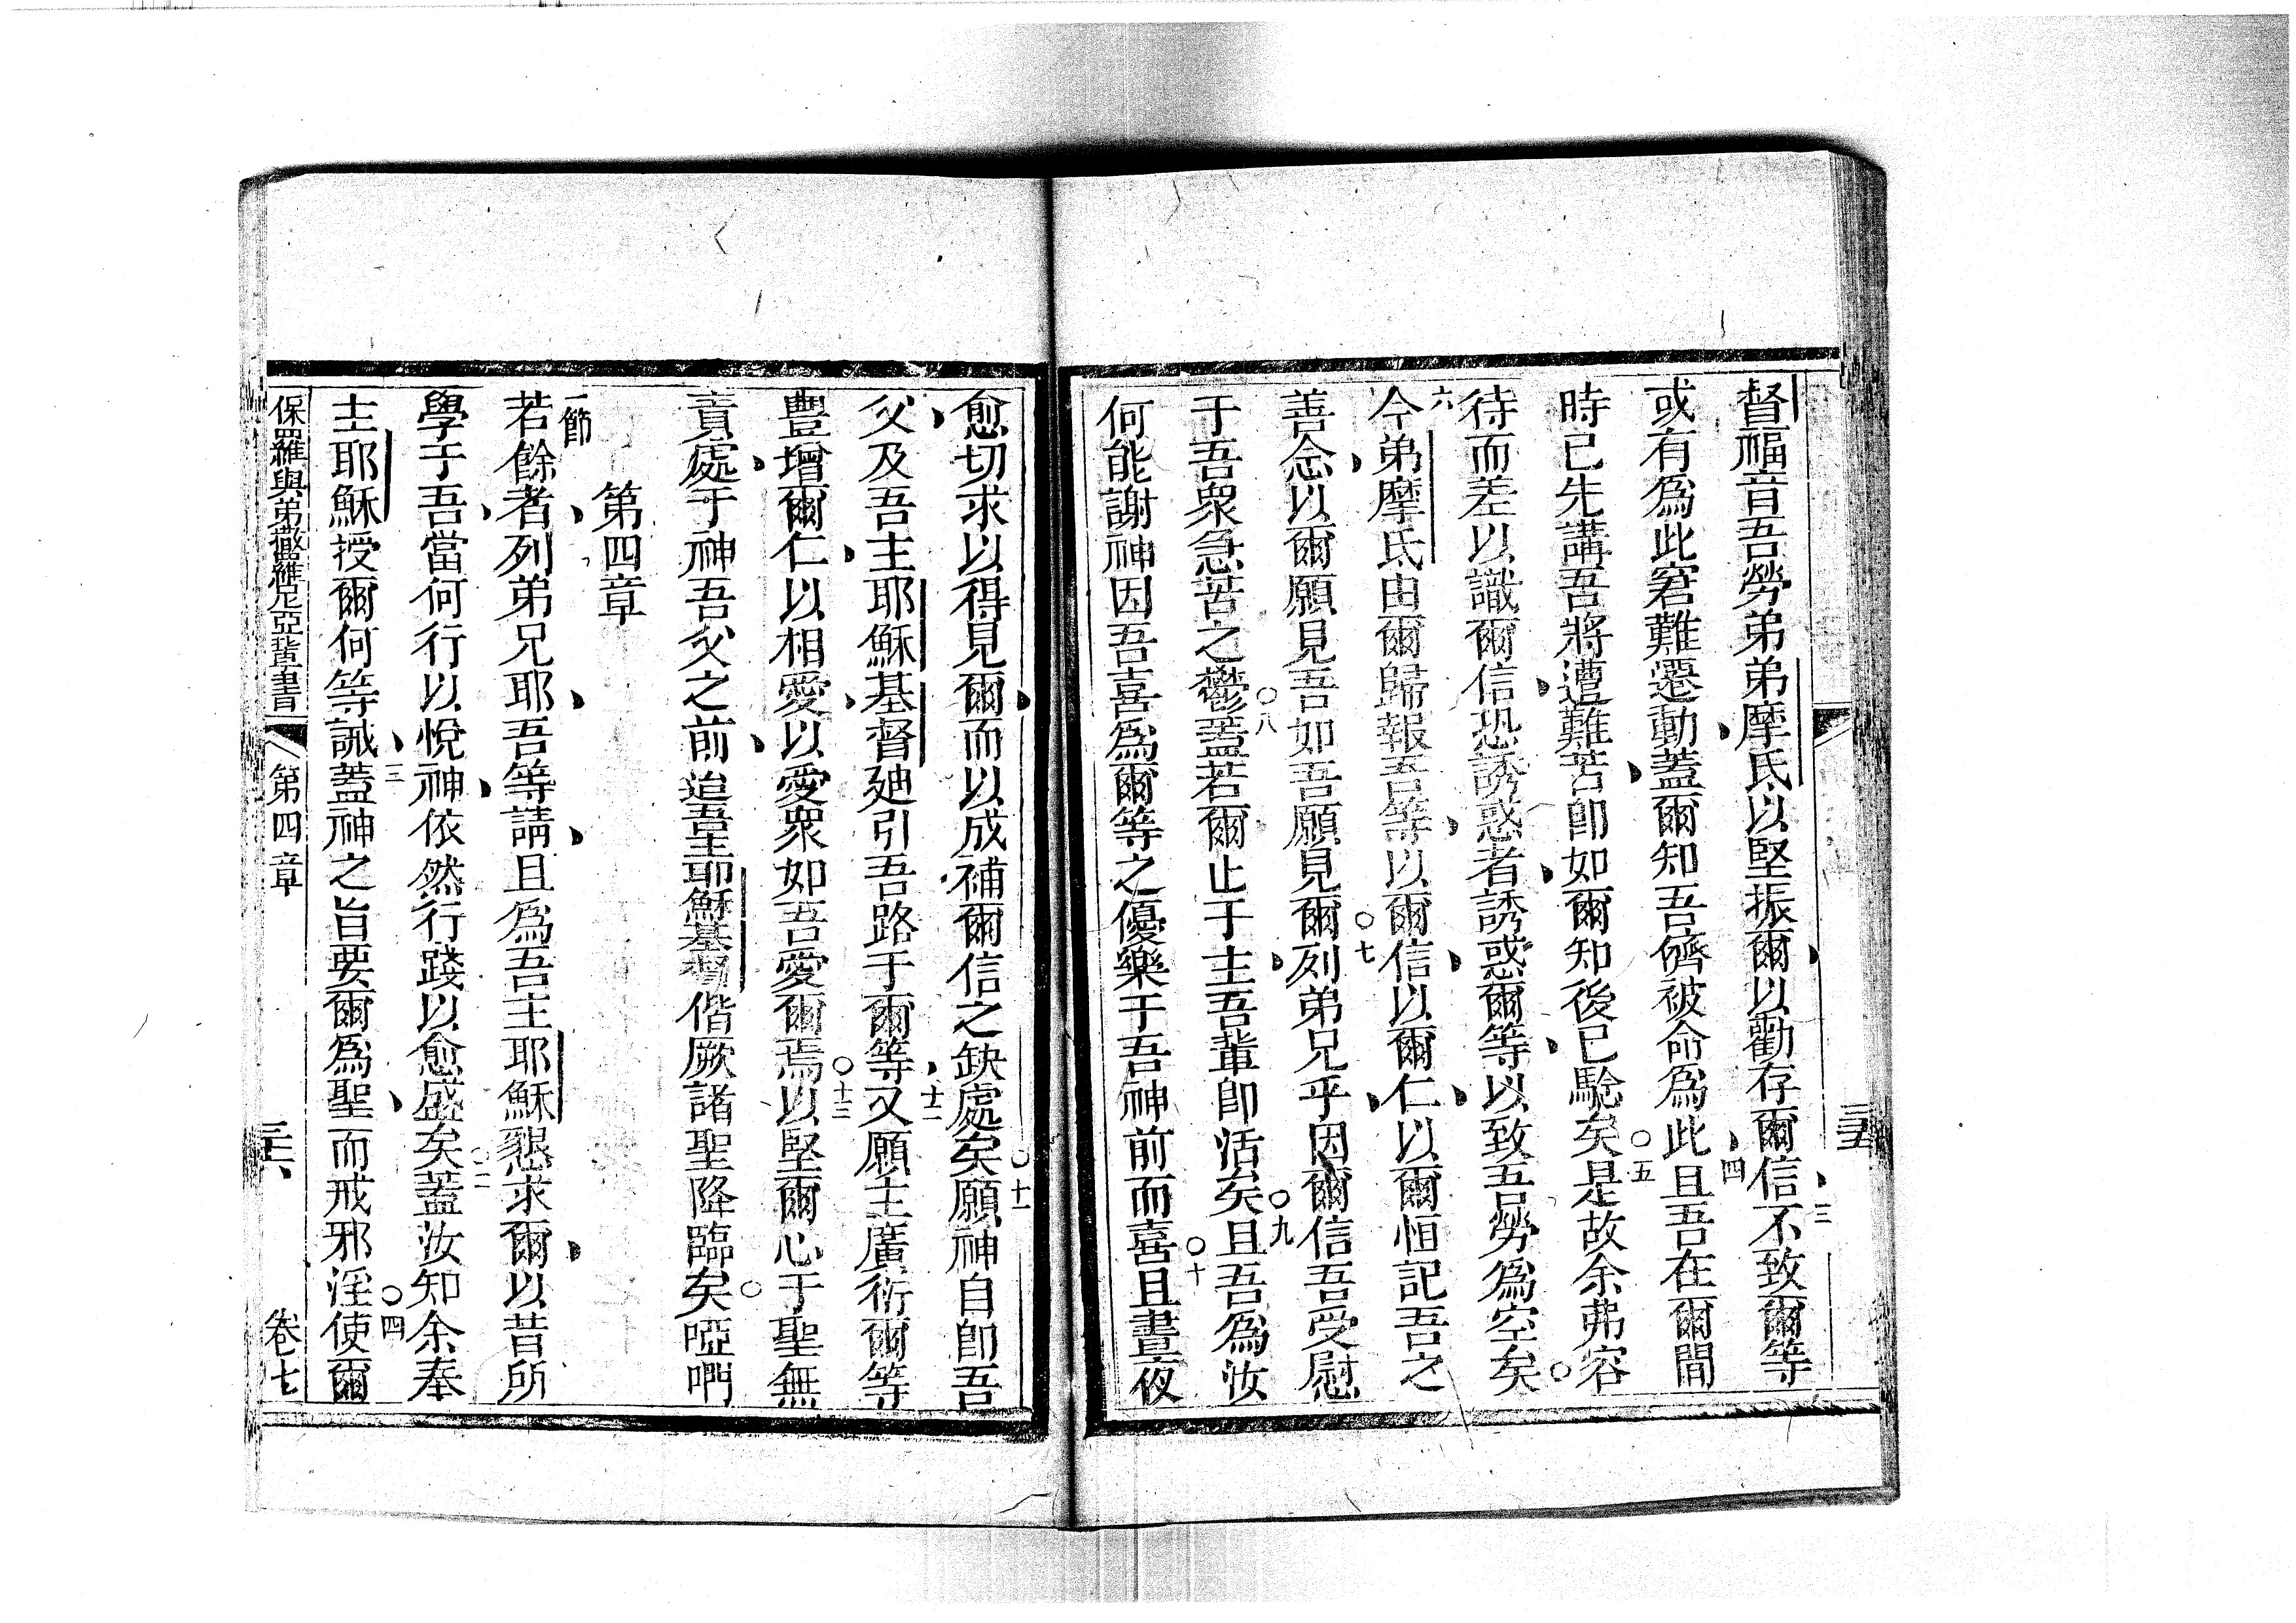 督福音吾勞弟弟摩氐以堅振爾以勸存爾信三不致爾等
或有為此窘難遷動蓋爾知吾儕被命為此四且吾在爾間
時已先講吾將遭難苦即如爾知後已驗矣○五是故余弗容
待而差以識爾信恐誘惑者誘惑爾等以致吾勞為空矣○
六今弟摩氐由爾歸報吾等以爾信以爾仁以爾恒記吾之
善念以爾願見吾如吾願見爾○七列弟兄乎因爾信吾受慰
于吾衆急苦之鬱○八蓋若爾止于主吾輩即活矣○九且吾為汝
何能謝神因吾喜為爾等之優樂于吾神前而喜○十且晝夜
三五
愈切求以得見爾而以成補爾信之缺處矣○十一願神自即吾
父及吾主耶穌基督廸引吾路于爾等十二又願主廣衍爾等
豐增爾仁以相愛以愛衆如吾愛爾焉○十三以堅爾心于聖無
責處于神吾父之前迨吾主耶穌基督偕厥諸聖降臨矣○啞啊
第四章
一節若餘者列弟兄耶吾等請且為吾主耶穌懇求爾以昔所
學于吾當何行以悅神依然行踐以愈盛矣○二蓋汝知余奉
主耶穌授爾何等誡三蓋神之旨要爾為聖而戒邪淫○四使爾
保羅與弟撒羅尼亞輩書 第四章 三六 卷七